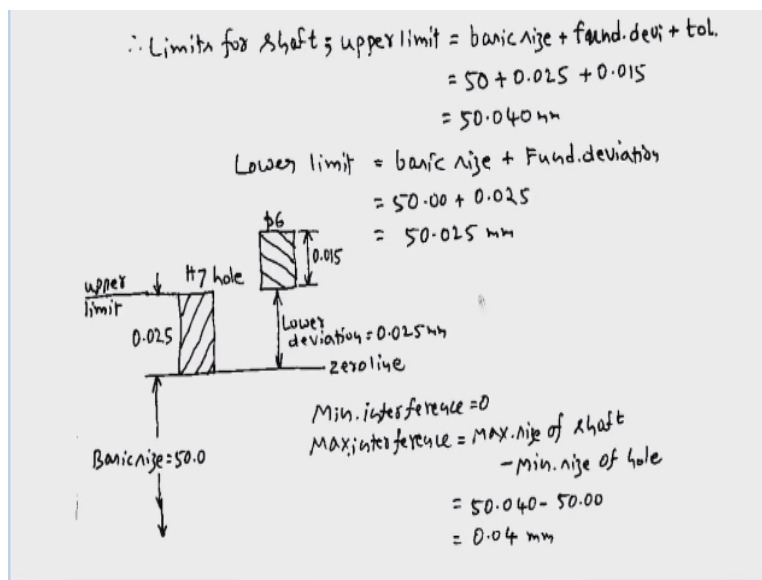 ∴ Limits for shaft; upper limit = basic size + fund. devi + tol.
= 50 + 0.025 + 0.015
= 50.040 mm
Lower limit = basic size + Fund. deviation
= 50.00 + 0.025
= 50.025 mm
p6
0.015
H7 hole
upper
limit
0.025
Lower
deviation = 0.025 mm
zero line
Basic size = 50.0
Min. interference = 0
Max. interference = Max. size of shaft
- Min. size of hole
= 50.040 - 50.00
= 0.04 mm